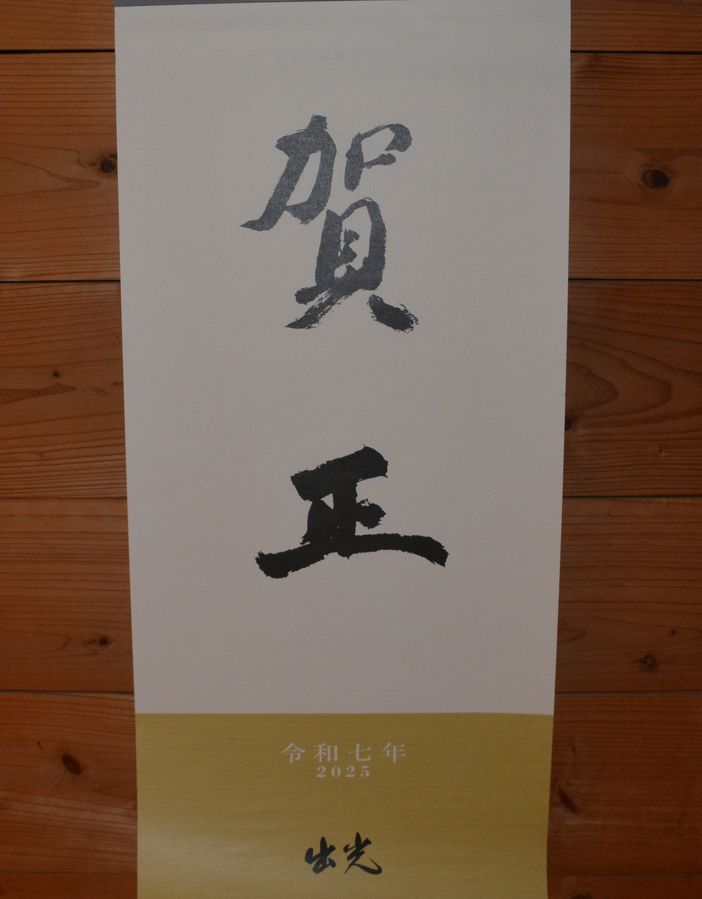 賀正
令和七年
2025
出光